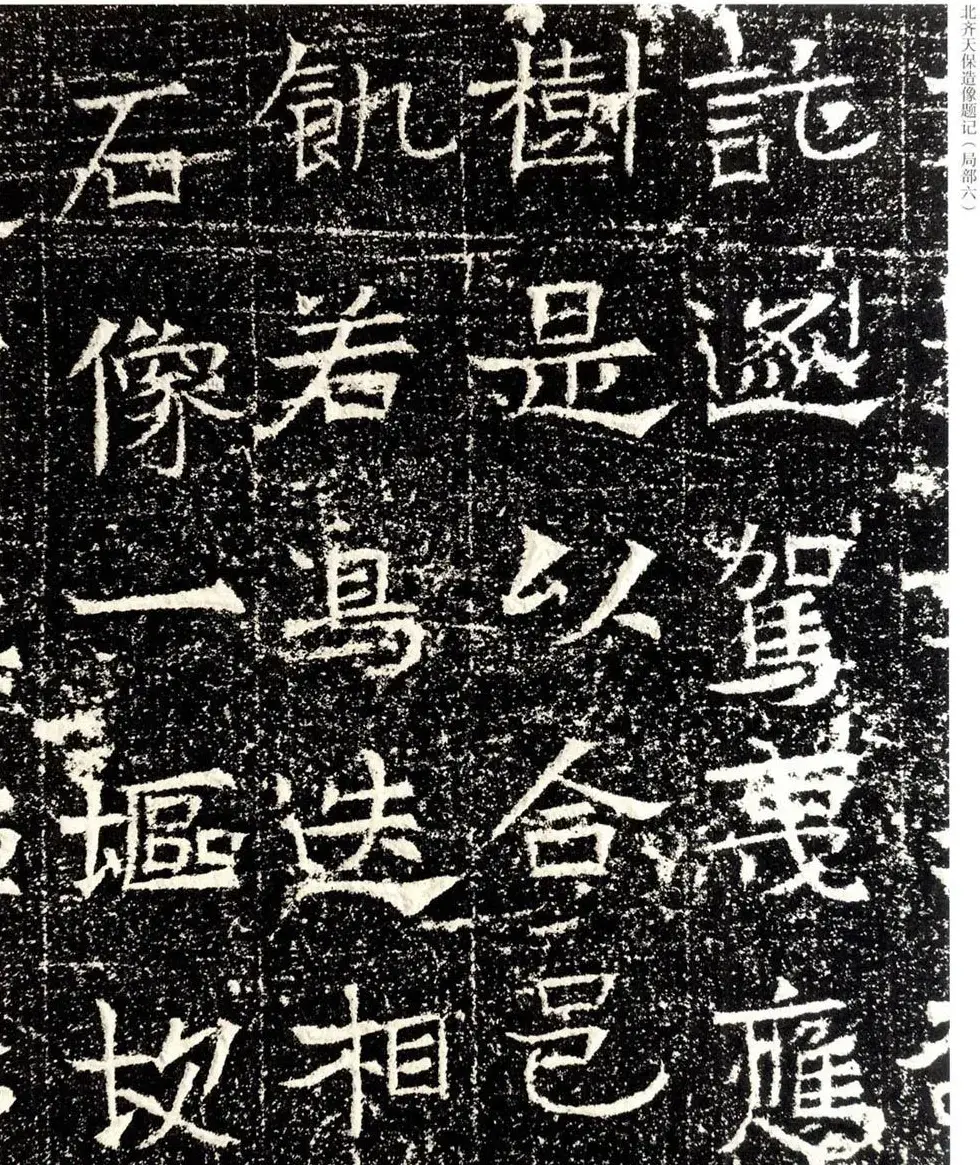 北齐天保造像题记（局部六）
託駕應
樹是以合邑
飢若鳥迭相
石像一塸故